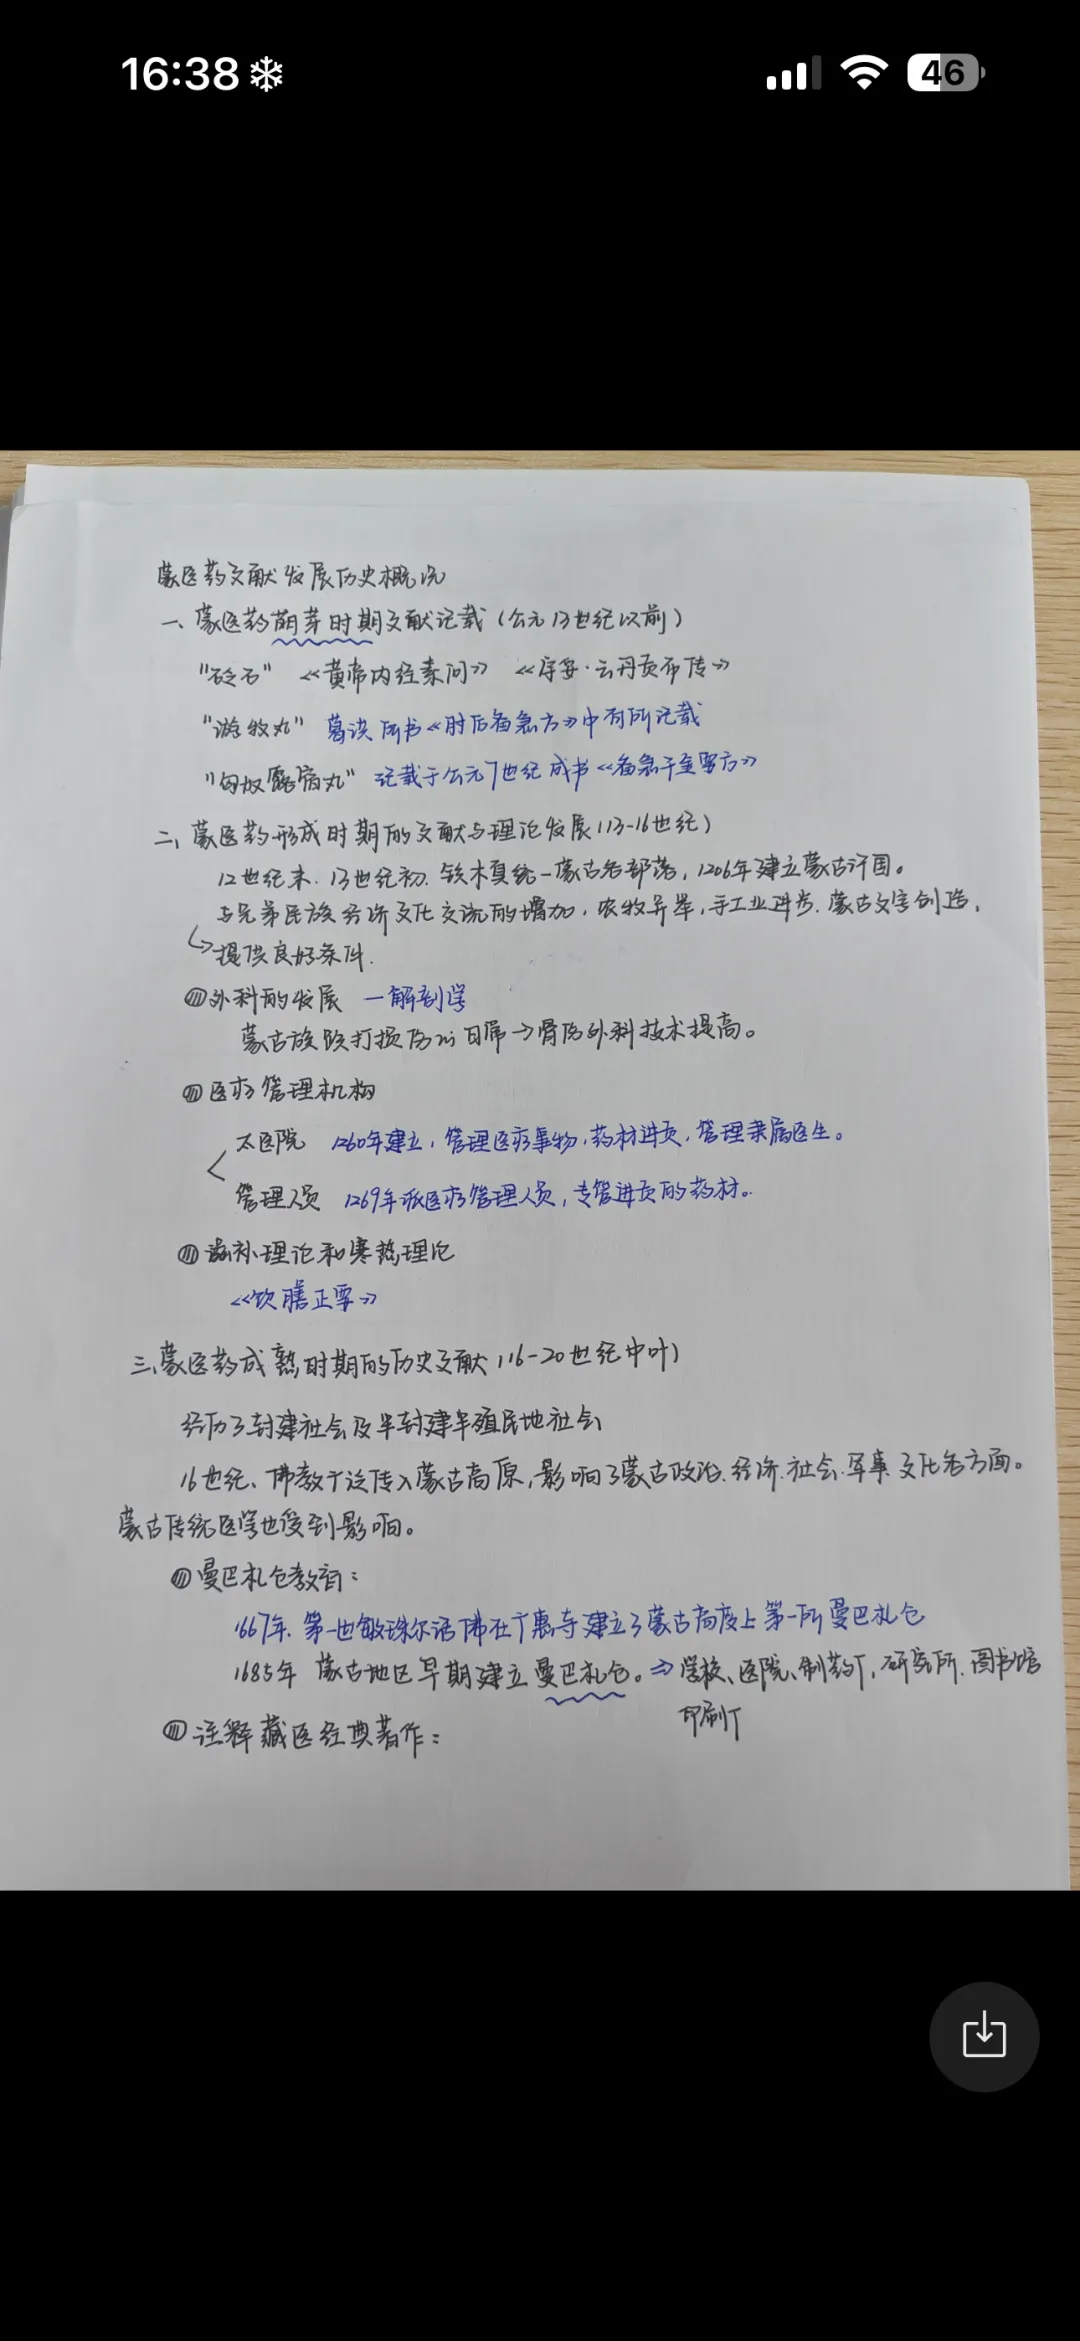 16:38
46
蒙医药文献发展历史概况
一、蒙医药萌芽时期文献记载(公元13世纪以前)
"砭石" 《黄帝内经素问》 《宇妥·云丹贡布传》
"游牧丸" 葛洪所书《肘后备急方》中有所记载
"匈奴露宿丸" 记载于公元7世纪成书《备急千金要方》
二、蒙医药形成时期的文献与理论发展(13-16世纪)
12世纪末.13世纪初.铁木真统一蒙古各部落,1206年建立蒙古汗国。
与兄弟民族经济文化交流的增加,农牧并举,手工业进步.蒙古文字创造,
提供良好条件.
外科的发展 一解剖学
蒙古族跌打损伤 日常→骨伤外科技术提高。
医疗管理机构
太医院 1260年建立,管理医疗事物,药材进贡,管理隶属医生。
管理人员 1269年派医疗管理人员,专管进贡的药材。
滋补理论和寒热理论
《饮膳正要》
三、蒙医药成熟时期的历史文献(16-20世纪中叶)
经历了封建社会及半封建半殖民地社会
16世纪、佛教广泛传入蒙古高原,影响了蒙古政治.经济.社会.军事.文化各方面。
蒙古传统医学也受到影响。
曼巴札仓教育:
1667年.第一世敏珠尔活佛在广惠寺建立了蒙古高度上第一所曼巴札仓
1685年 蒙古地区早期建立曼巴札仓。⇒学校、医院、制药厂,研究所.图书馆
印刷厂
注释藏医经典著作: